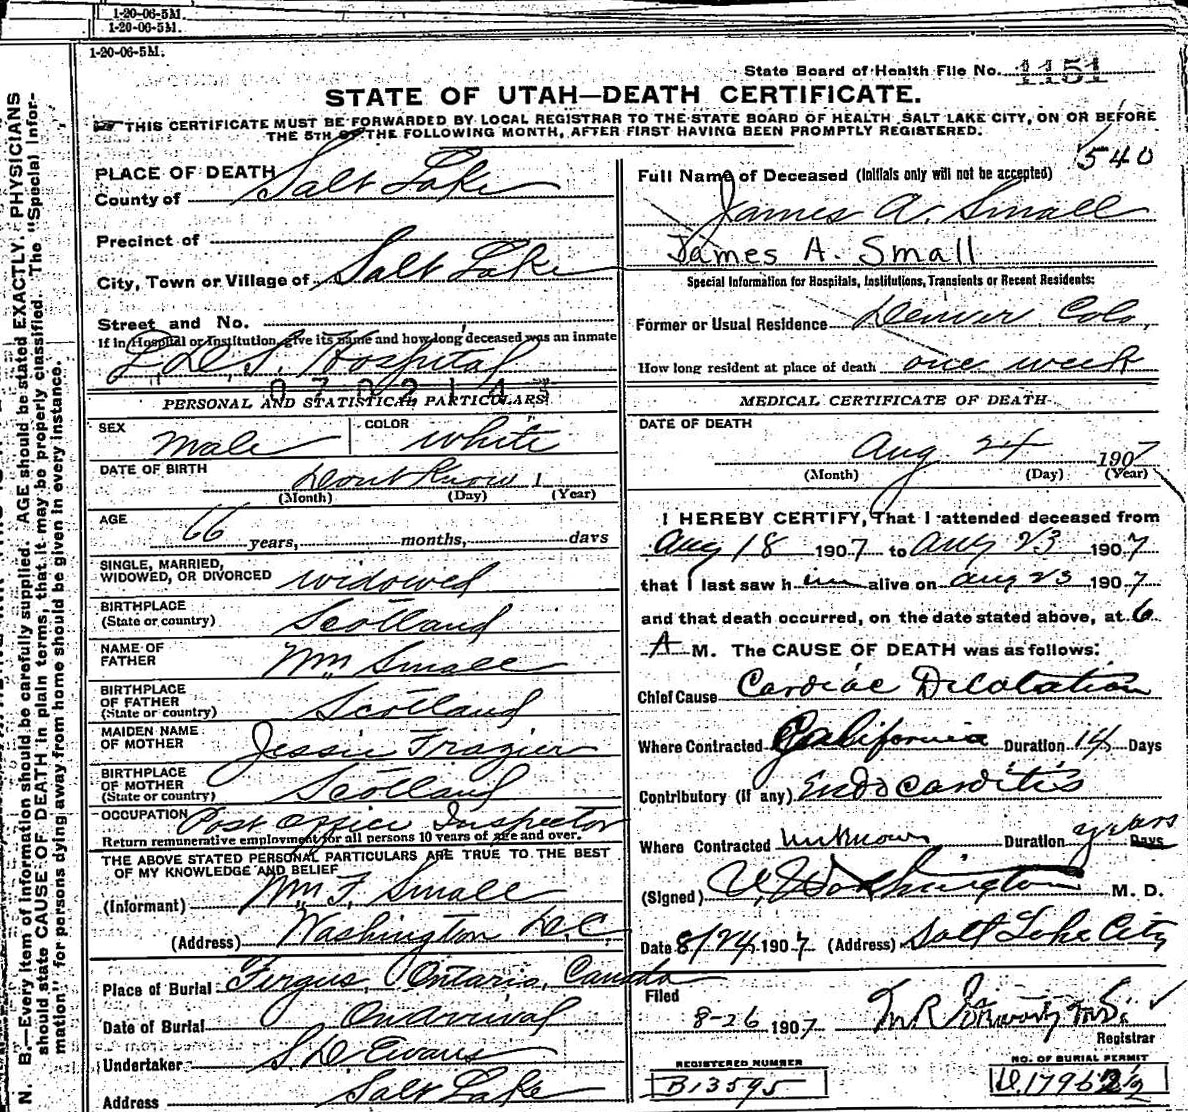 1-20-06-5M.
1-20-06-5M.
1-20-06-5M.
State Board of Health File No. 1151
STATE OF UTAH—DEATH CERTIFICATE.
THIS CERTIFICATE MUST BE FORWARDED BY LOCAL REGISTRAR TO THE STATE BOARD OF HEALTH SALT LAKE CITY, ON OR BEFORE
THE 5TH OF THE FOLLOWING MONTH, AFTER FIRST HAVING BEEN PROMPTLY REGISTERED.
N. B.—Every item of information should be carefully supplied. AGE should be stated EXACTLY. PHYSICIANS
should state CAUSE OF DEATH in plain terms, that it may be properly classified. The "Special Infor-
mation" for persons dying away from home should be given in every instance.
PLACE OF DEATH
County of Salt Lake
Precinct of
City, Town or Village of Salt Lake
Street and No.
If in Hospital or Institution, give its name and how long deceased was an inmate
L.D.S. Hospital
PERSONAL AND STATISTICAL PARTICULARS
SEX male COLOR white
DATE OF BIRTH Dont Know 1
(Month) (Day) (Year)
AGE 66 years, months, days
SINGLE, MARRIED,
WIDOWED, OR DIVORCED widowed
BIRTHPLACE
(State or country) Scotland
NAME OF
FATHER Wm Small
BIRTHPLACE
OF FATHER
(State or country) Scotland
MAIDEN NAME
OF MOTHER Jessie Frazier
BIRTHPLACE
OF MOTHER
(State or country) Scotland
OCCUPATION Post Office Inspector
Return remunerative employment for all persons 10 years of age and over.
THE ABOVE STATED PERSONAL PARTICULARS ARE TRUE TO THE BEST
OF MY KNOWLEDGE AND BELIEF
(Informant) Wm. F. Small
(Address) Washington D.C.
Place of Burial Fergus, Ontario, Canada
Date of Burial On Arrival
Undertaker S. D. Evans
Address Salt Lake
540
Full Name of Deceased (Initials only will not be accepted)
James A. Small
James A. Small
Special Information for Hospitals, Institutions, Transients or Recent Residents:
Former or Usual Residence Denver Colo.
How long resident at place of death one week
MEDICAL CERTIFICATE OF DEATH
DATE OF DEATH
Aug 24 1907
(Month) (Day) (Year)
I HEREBY CERTIFY, That I attended deceased from
Aug 18 1907 to Aug 23 1907
that I last saw him alive on Aug 23 1907
and that death occurred, on the date stated above, at 6
A M. The CAUSE OF DEATH was as follows:
Chief Cause Cardiac Dilatation
Where Contracted California Duration 14 Days
Contributory (if any) Endocarditis
Where Contracted Unknown Duration years Days
(Signed) Worthington M. D.
Date 8/24 1907 (Address) Salt Lake City
Filed
8-26 1907
Registrar
REGISTERED NUMBER
B13595
NO. OF BURIAL PERMIT